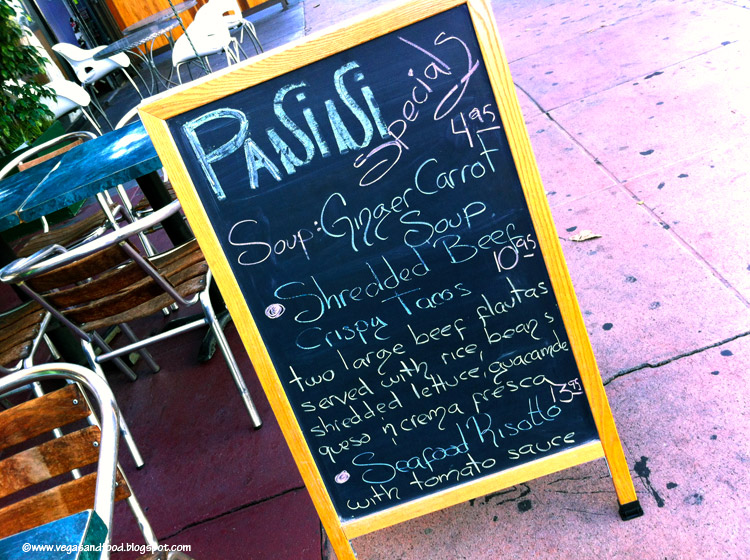 PANSINSI Specials
4.95
Soup: Ginger Carrot
Soup
Shredded Beef
10.95
Crispy Tacos
two large beef flautas
served with rice, beans
shredded lettuce, guacamole
queso n, crema fresca
13.95
Seafood Risotto
with tomato sauce
©www.vegasandfood.blogspot.com